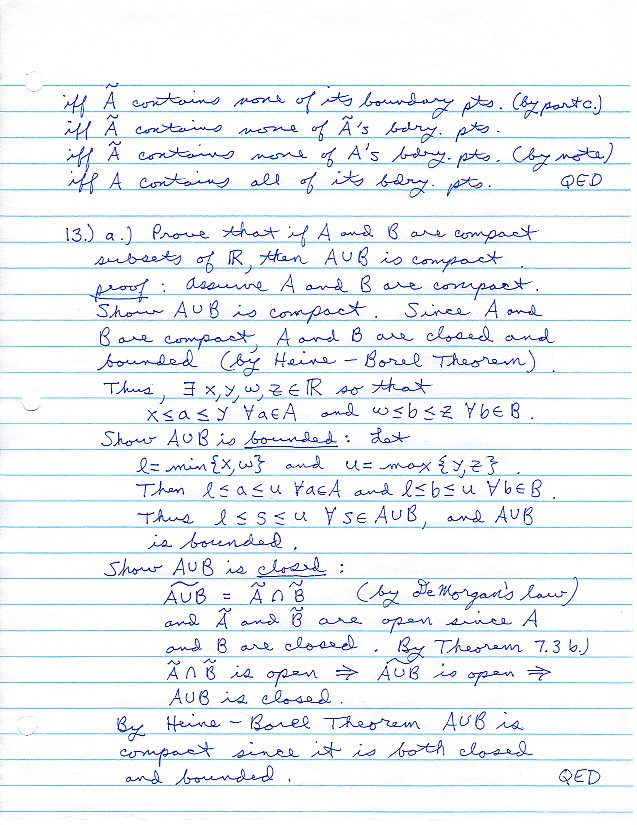 iff Ã contains none of its boundary pts. (by part c.)
iff Ã contains none of Ã's bdry. pts.
iff Ã contains none of A's bdry. pts. (by note)
iff A contains all of its bdry. pts. QED
13.) a.) Prove that if A and B are compact
subsets of ℝ, then A∪B is compact.
proof: Assume A and B are compact.
Show A∪B is compact. Since A and
B are compact, A and B are closed and
bounded (by Heine-Borel Theorem).
Thus, ∃ x,y,w,z∈ℝ so that
x≤a≤y ∀a∈A and w≤b≤z ∀b∈B.
Show A∪B is bounded: Let
l=min{x,w} and u=max{y,z}.
Then l≤a≤u ∀a∈A and l≤b≤u ∀b∈B.
Thus l≤s≤u ∀s∈A∪B, and A∪B
is bounded.
Show A∪B is closed:
\widetilde{A∪B} = Ã∩B̃ (by DeMorgan's law)
and Ã and B̃ are open since A
and B are closed. By Theorem 7.3 b.)
Ã∩B̃ is open ⇒ \widetilde{A∪B} is open ⇒
A∪B is closed.
By Heine-Borel Theorem A∪B is
compact since it is both closed
and bounded. QED